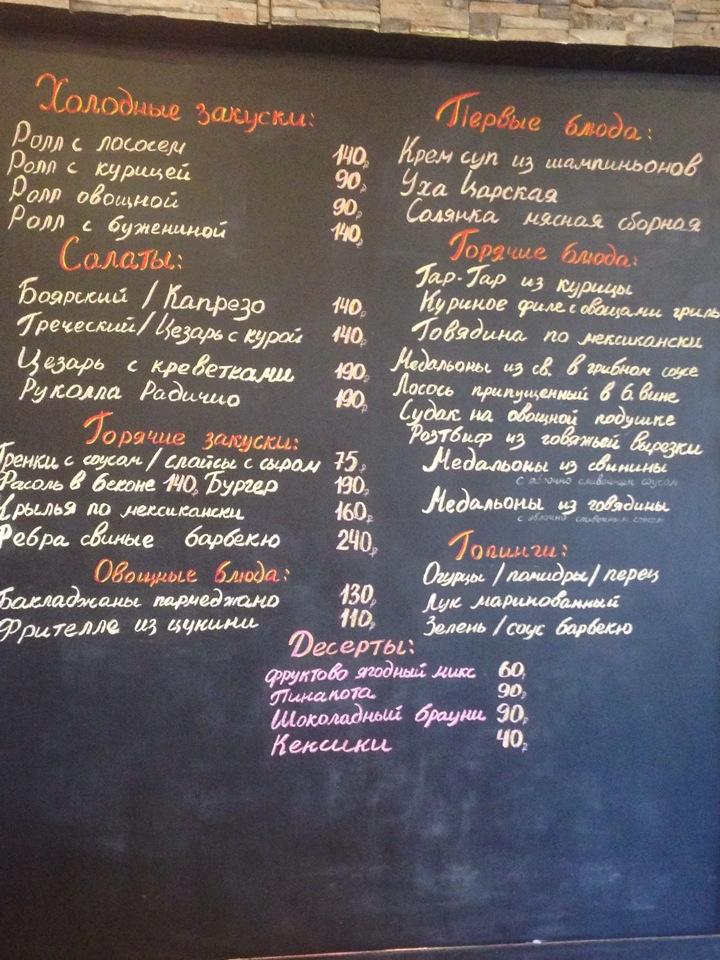 Холодные закуски:
Ролл с лососем 140р
Ролл с курицей 90р
Ролл овощной 90р
Ролл с бужениной 140р
Салаты:
Боярский / Капрезо 140р
Греческий / Цезарь с курой 140р
Цезарь с креветками 190р
Руколла Радичио 190р
Горячие закуски:
Гренки с соусом / слайсы с сыром 75р
Фасоль в беконе 140р Бургер 190р
Крылья по мексикански 160р
Ребра свиные барбекю 240р
Овощные блюда:
Бакладжаны пармеджано 130р
Фрителле из цукини 110р
Первые блюда:
Крем суп из шампиньонов
Уха Царская
Солянка мясная сборная
Горячие блюда:
Тар-Тар из курицы
Куриное филе с овощами гриль
Говядина по мексикански
Медальоны из св. в грибном соусе
Лосось припущенный в б. вине
Судак на овощной подушке
Розтбиф из говяжьей вырезки
Медальоны из свинины
с яблочно сливочным соусом
Медальоны из говядины
с яблочно сливочным соусом
Топинги:
Огурцы / помидры / перец
Лук маринованный
Зелень / соус барбекю
Десерты:
фруктово ягодный микс 60р
Пинакота 90р
Шоколадный брауни 90р
Кексики 40р